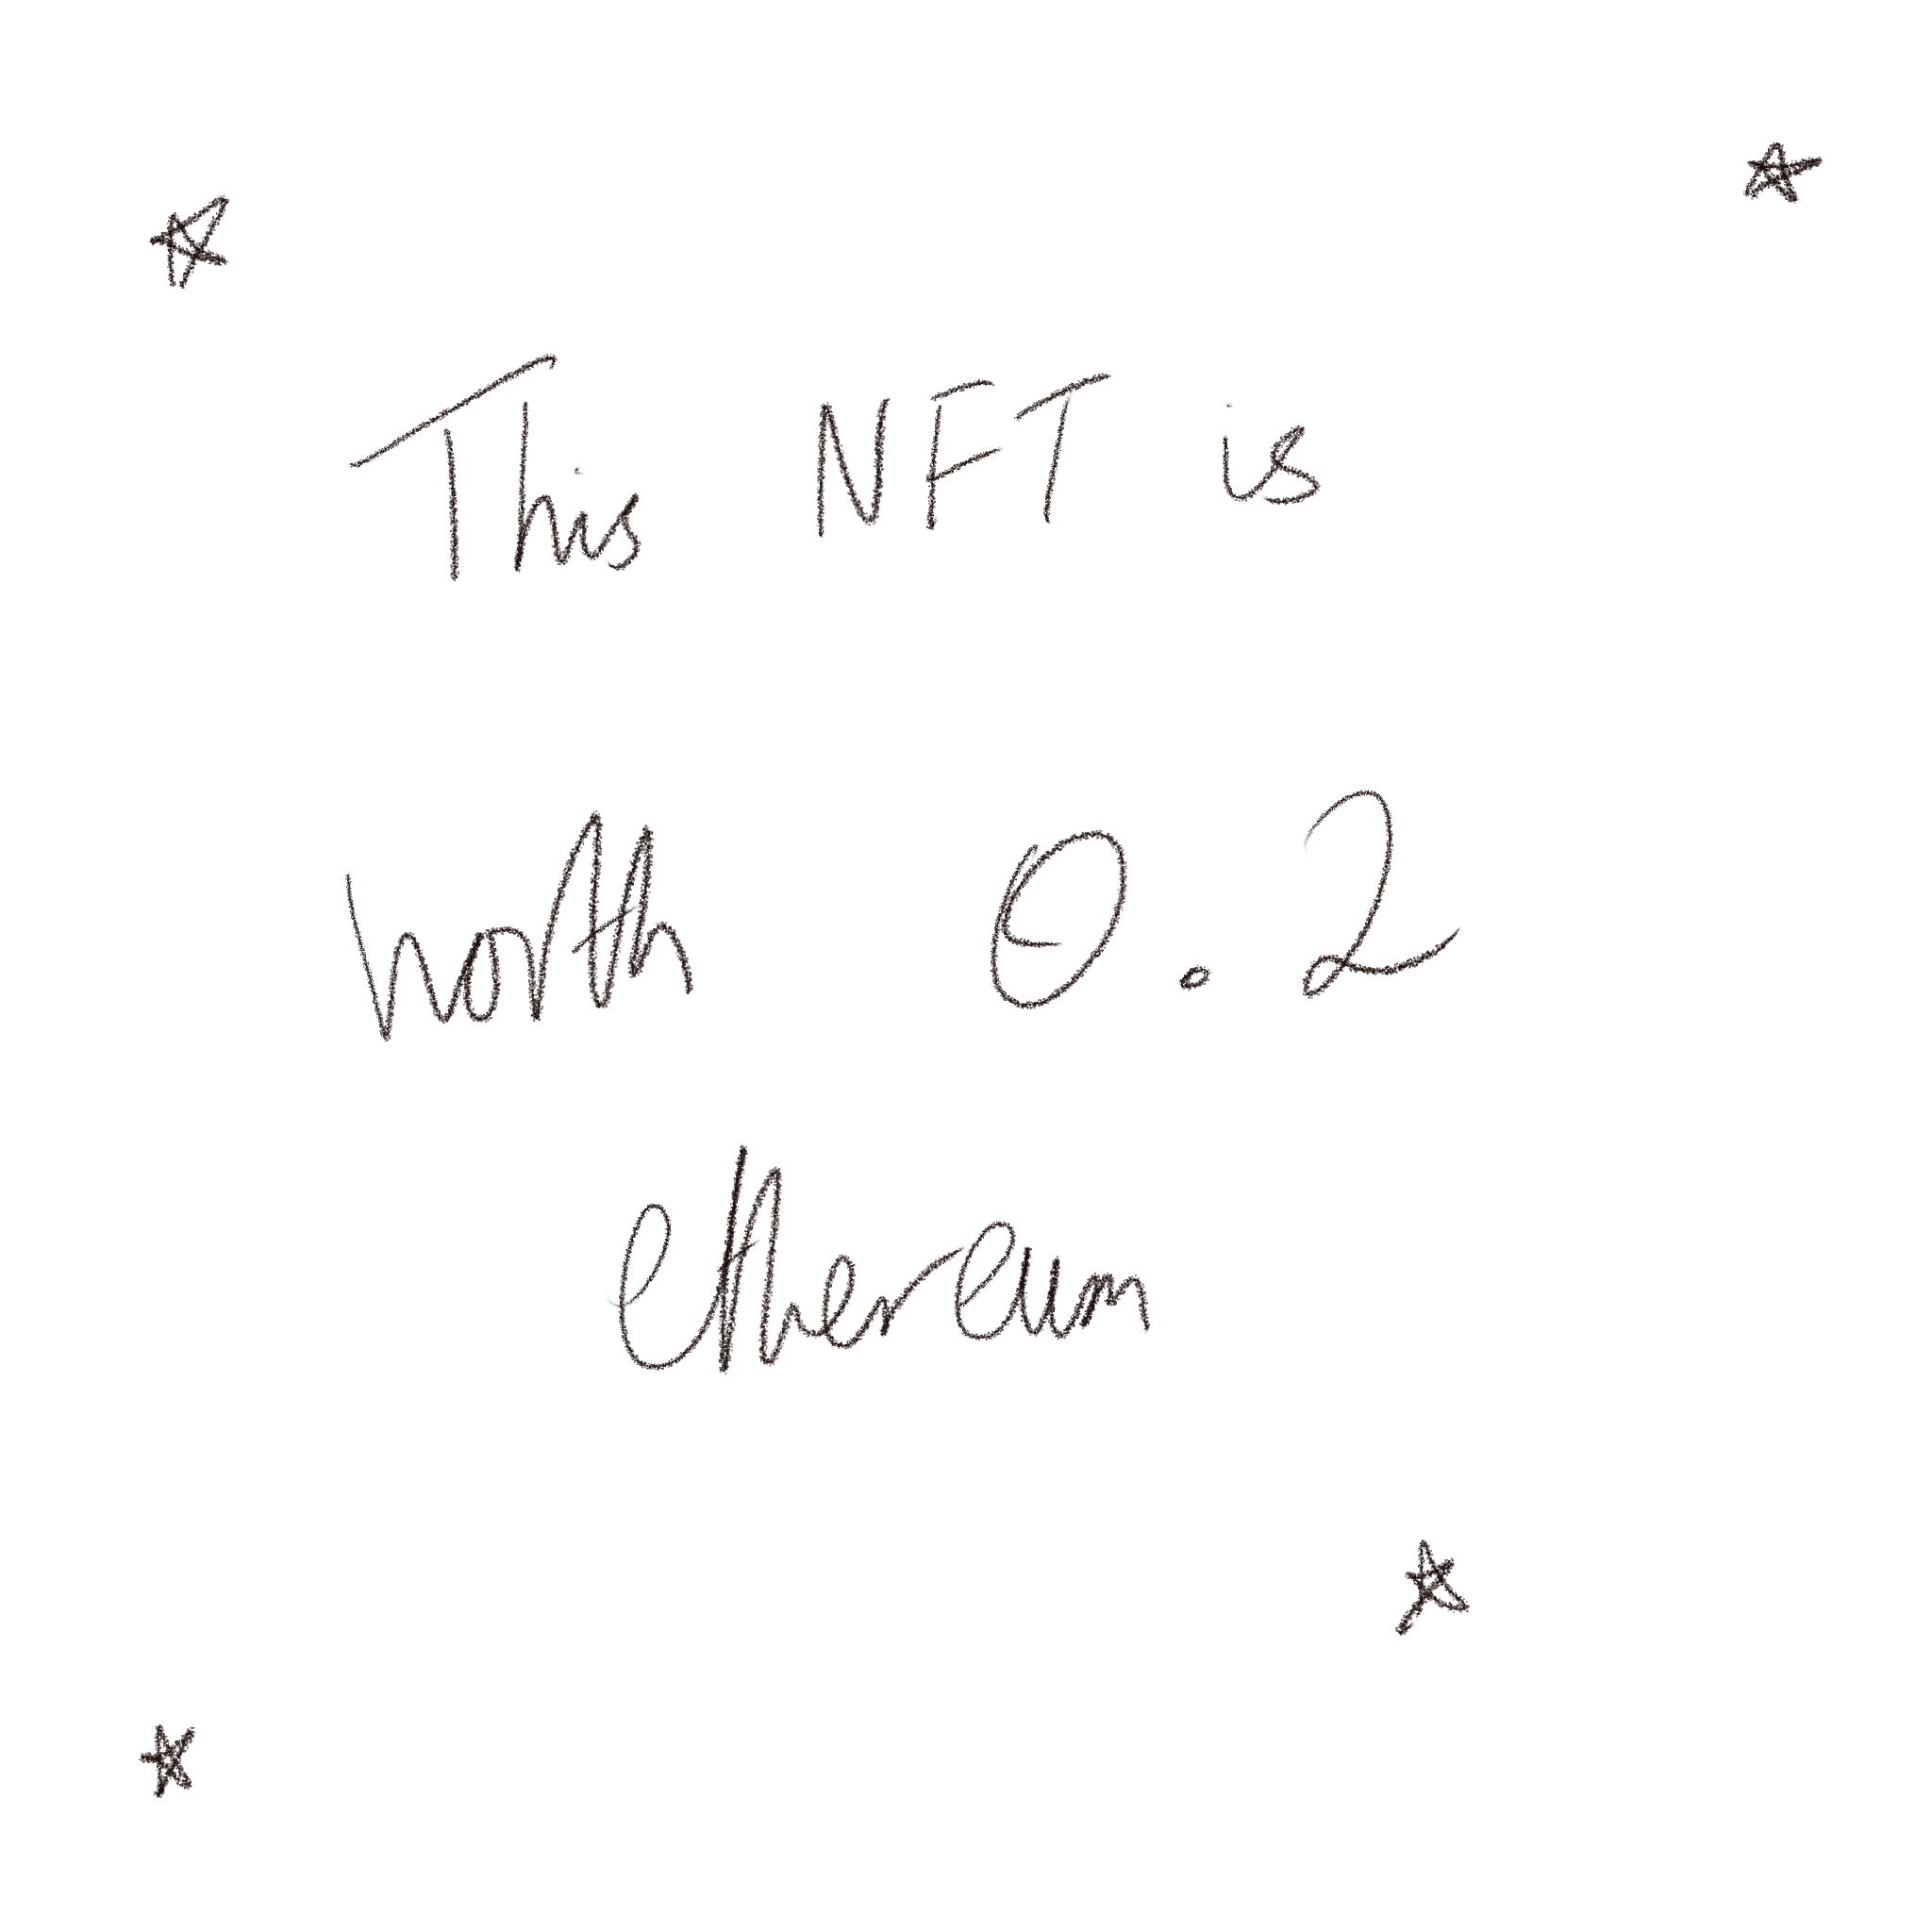 This NFT is
worth 0.2
ethereum